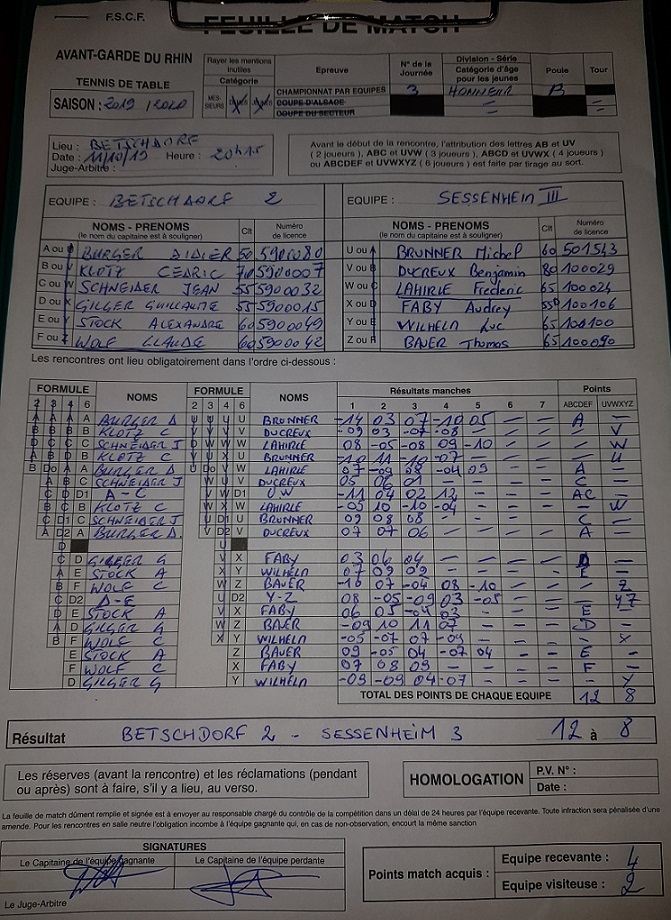 F.S.C.F.
FEUILLE DE MATCH
AVANT-GARDE DU RHIN
TENNIS DE TABLE
SAISON : 2019 / 2020
Rayer les mentions inutiles
Catégorie
MES-SIEURS
Epreuve
CHAMPIONNAT PAR EQUIPES
COUPE D'ALSACE
COUPE DU SECTEUR
N° de la Journée
3
Division - Série
Catégorie d'âge pour les jeunes
HONNEUR
Poule
B
Tour
Lieu : BETSCHDORF
Date : 11/10/19 Heure : 20h15
Juge-Arbitre :
Avant le début de la rencontre, l'attribution des lettres AB et UV
( 2 joueurs ), ABC et UVW ( 3 joueurs ), ABCD et UVWX ( 4 joueurs )
ou ABCDEF et UVWXYZ ( 6 joueurs ) est faite par tirage au sort.
EQUIPE : BETSCHDORF 2
EQUIPE : SESSENHEIM III
NOMS - PRENOMS (le nom du capitaine est à souligner) Clt Numéro de licence
A ou BURGER DIDIER 50 5900080
B ou KLOTZ CEDRIC 70 5900007
C ou W SCHNEIDER JEAN 55 5900032
D ou X GILGER GUILLAUME 55 5900015
E ou Y STOCK ALEXANDRE 60 5900049
F ou Z WOLF CLAUDE 60 5900042
NOMS - PRENOMS (le nom du capitaine est à souligner) Clt Numéro de licence
U ou A BRUNNER Michel 60 501543
V ou B DUCREUX Benjamin 80 100029
W ou C LAHIRLE Frederic 65 100024
X ou D FABY Audrey 55 100106
Y ou E WILHELM Luc 65 100100
Z ou F BAUER Thomas 65 100090
Les rencontres ont lieu obligatoirement dans l'ordre ci-dessous :
FORMULE NOMS FORMULE NOMS Résultats manches Points
2 3 4 6 2 3 4 6 1 2 3 4 5 6 7 ABCDEF UVWXYZ
A BURGER D U BRUNNER -14 03 07 -10 05 A
B KLOTZ C V DUCREUX -09 03 -07 -08 V
C SCHNEIDER J W LAHIRLE 08 -05 -08 09 -10 W
B KLOTZ C U BRUNNER -10 11 -10 -07 U
A BURGER D W LAHIRLE 07 -09 08 -04 09 A
C SCHNEIDER J V DUCREUX 05 06 01 C
D1 A - C D1 UW -11 04 02 12 AC
B KLOTZ C W LAHIRLE -05 10 -04 -04 W
C SCHNEIDER J U BRUNNER 09 08 08 C
A BURGER D. V DUCREUX 07 07 06 A
D GILGER G X FABY 03 06 04 D
E STOCK A Y WILHELM 07 09 09 E
F WOLF C Z BAUER -10 07 -04 08 -10 Z
D2 D - E D2 Y-Z 08 -05 -09 03 -05 YZ
E STOCK A X FABY 06 05 -04 03 E
D GILGER G Z BAUER -09 10 11 07 D
F WOLF C Y WILHELM -05 -07 07 -09 X
E STOCK A Z BAUER 09 -05 04 -07 04 E
F WOLF C X FABY 07 08 09 F
D GILGER G Y WILHELM -09 -09 04 -07 Y
TOTAL DES POINTS DE CHAQUE EQUIPE 12 8
Résultat BETSCHDORF 2 - SESSENHEIM 3 12 à 8
Les réserves (avant la rencontre) et les réclamations (pendant
ou après) sont à faire, s'il y a lieu, au verso.
HOMOLOGATION
P.V. N° :
Date :
La feuille de match dûment remplie et signée est à envoyer au responsable chargé du contrôle de la compétition dans un délai de 24 heures par l'équipe recevante. Toute infraction sera pénalisée d'une
amende. Pour les rencontres en salle neutre l'obligation incombe à l'équipe gagnante qui, en cas de non-observation, encourt la même sanction
SIGNATURES
Le Capitaine de l'équipe gagnante
Le Capitaine de l'équipe perdante
Le Juge-Arbitre
Points match acquis :
Equipe recevante : 4
Equipe visiteuse : 2